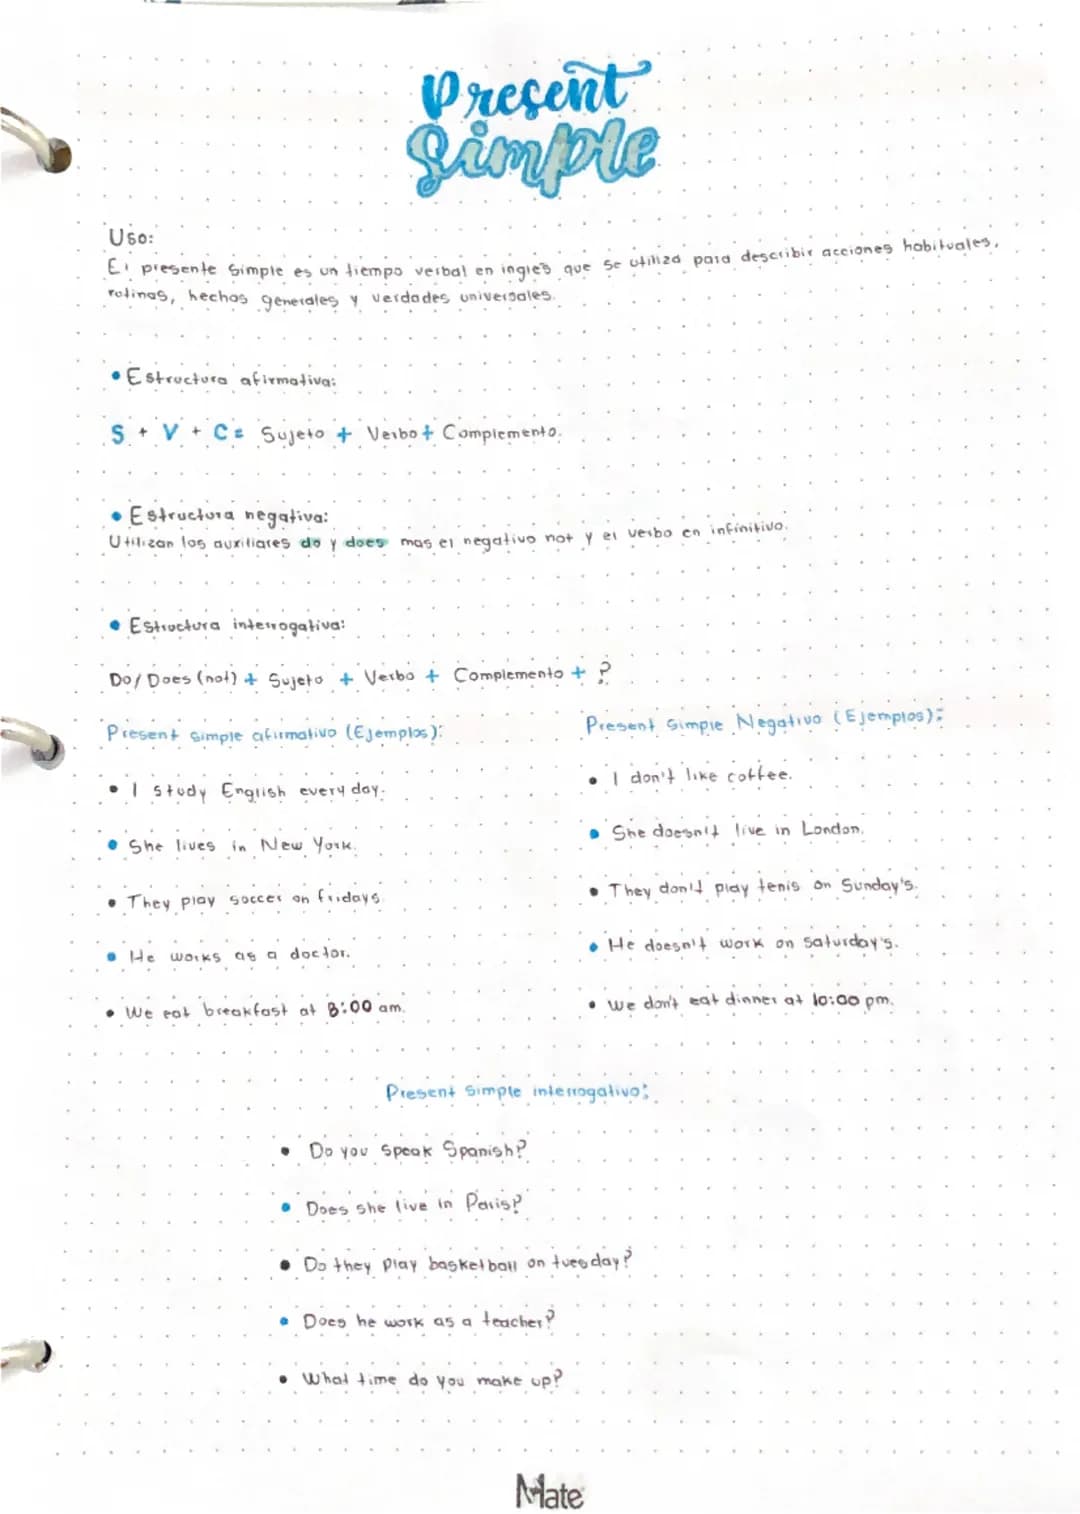 Present
Simple
Uso:
El presente simple es un tiempo verbal en ingles que se utiliza para describir acciones habituales,
rutinas, hechos generales y verdades universales.
• Estructura afirmativa:
S + V + C = Sujeto + Verbo + Complemento.
• Estructura negativa:
Utilizan los auxiliares do y does mas el negativo not y el verbo en infinitivo.
• Estructura interrogativa:
Do/Does (not) + Sujeto + Verbo + Complemento + ?
Present simple afirmativo (Ejemplos):
• I study English every day.
• She lives in New York.
• They play soccer on fridays.
• He works as a doctor.
• We eat breakfast at 8:00 am.
Present Simple Negativo (Ejemplos):
• I don't like coffee.
• She doesn't live in London.
• They don't play tenis on Sunday's.
• He doesn't work on saturday's.
• We don't eat dinner at 10:00 pm.
Present simple interrogativo:
• Do you speak Spanish?
• Does she live in Paris?
• Do they play basketball on tuesday?
• Does he work as a teacher?
• What time do you make up?
Mate